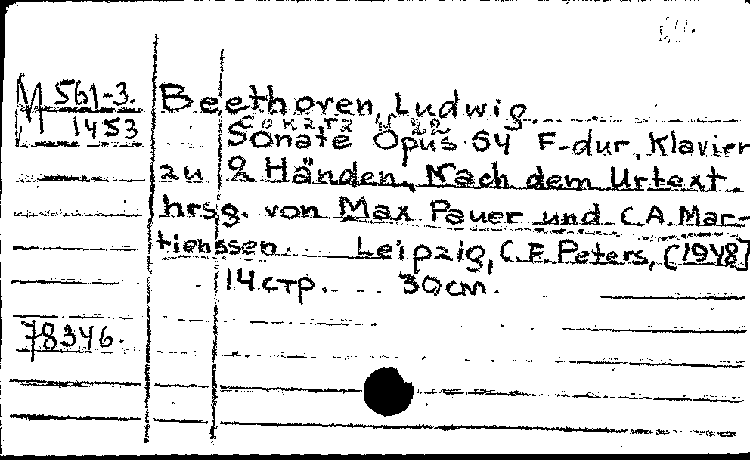 М 561-3.
1453
Beethoven, Ludwig.
Sonate Opus 54 F-dur, Klavier
zu 2 Händen. Nach dem Urtext
hrsg. von Max Pauer und C.A. Mar-
tienssen. Leipzig, C.F. Peters, [1948]
14 стр. 30 см.
78346.